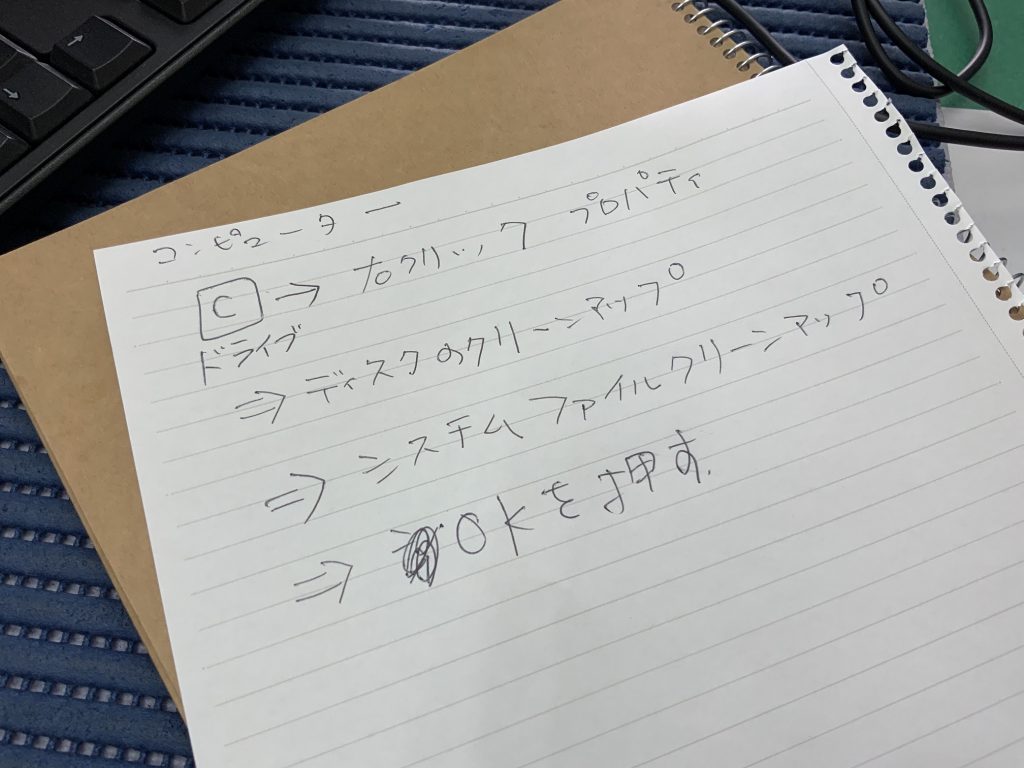 コンピューター
C → 右クリック プロパティ
ドライブ
⇒ ディスクのクリーンアップ
⇒ システムファイルクリーンアップ
⇒ OKを押す.